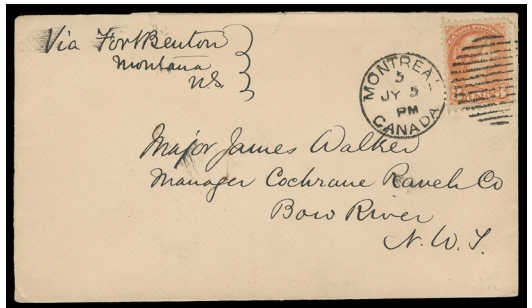 Via Fort Benton
Montana
U.S.
MONTREAL
5
JY 5
PM
CANADA
Major James Walker
Manager Cochrane Ranch Co
Bow River
N.W.T.